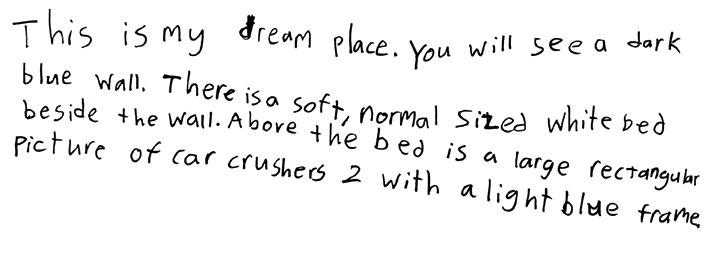 This is my dream place. You will see a dark
blue wall. There is a soft, normal sized white bed
beside the wall. Above the bed is a large rectangular
picture of car crushers 2 with a light blue frame.